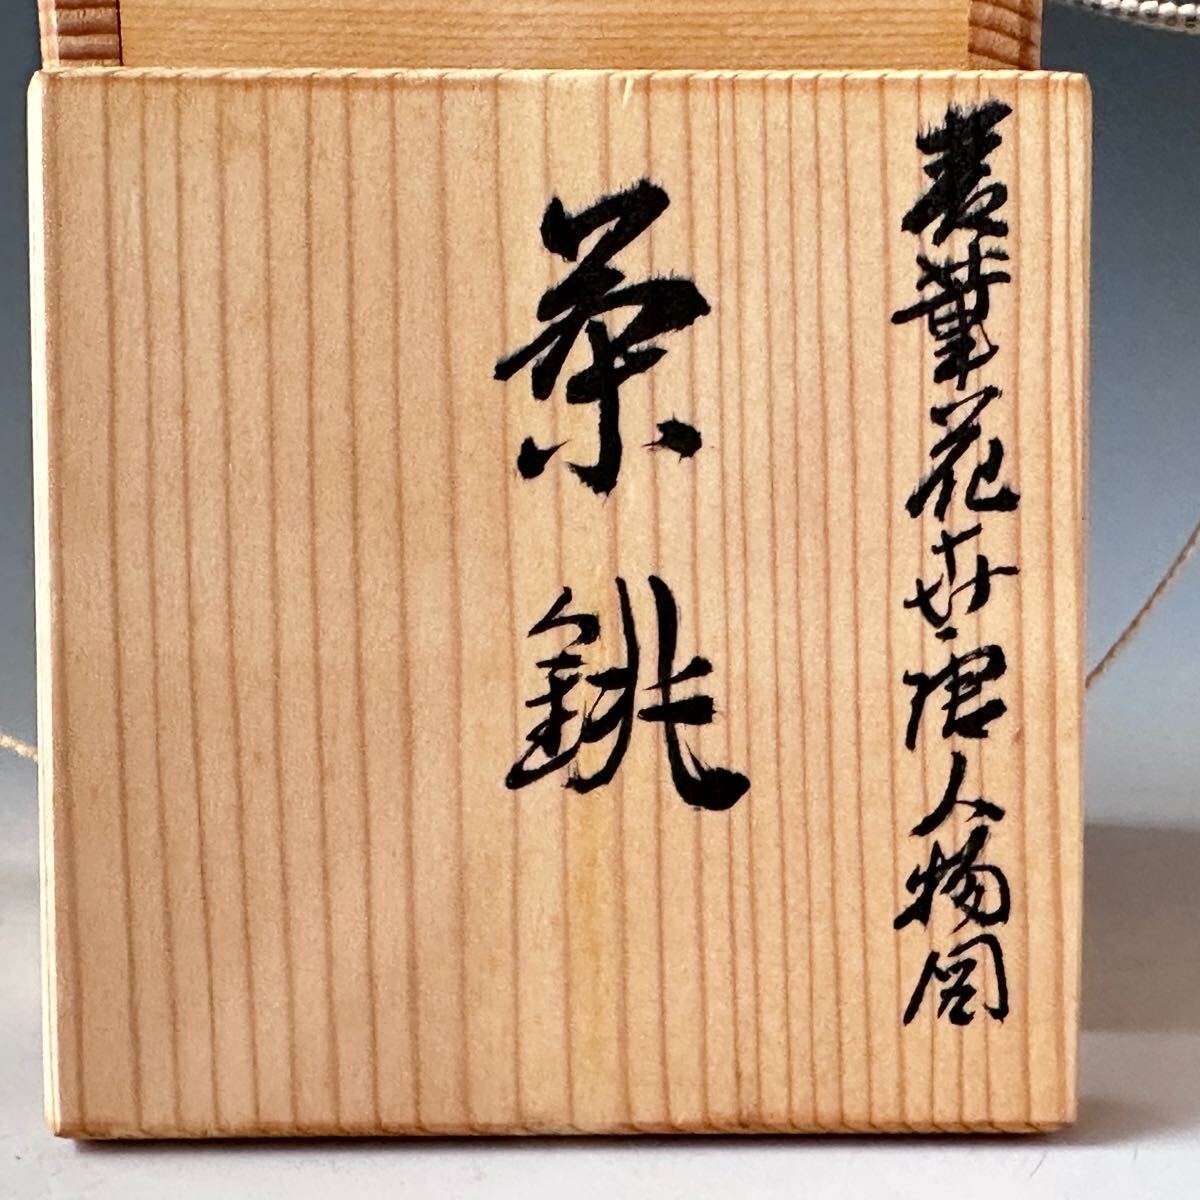 華花卉唐人物図
茶銚